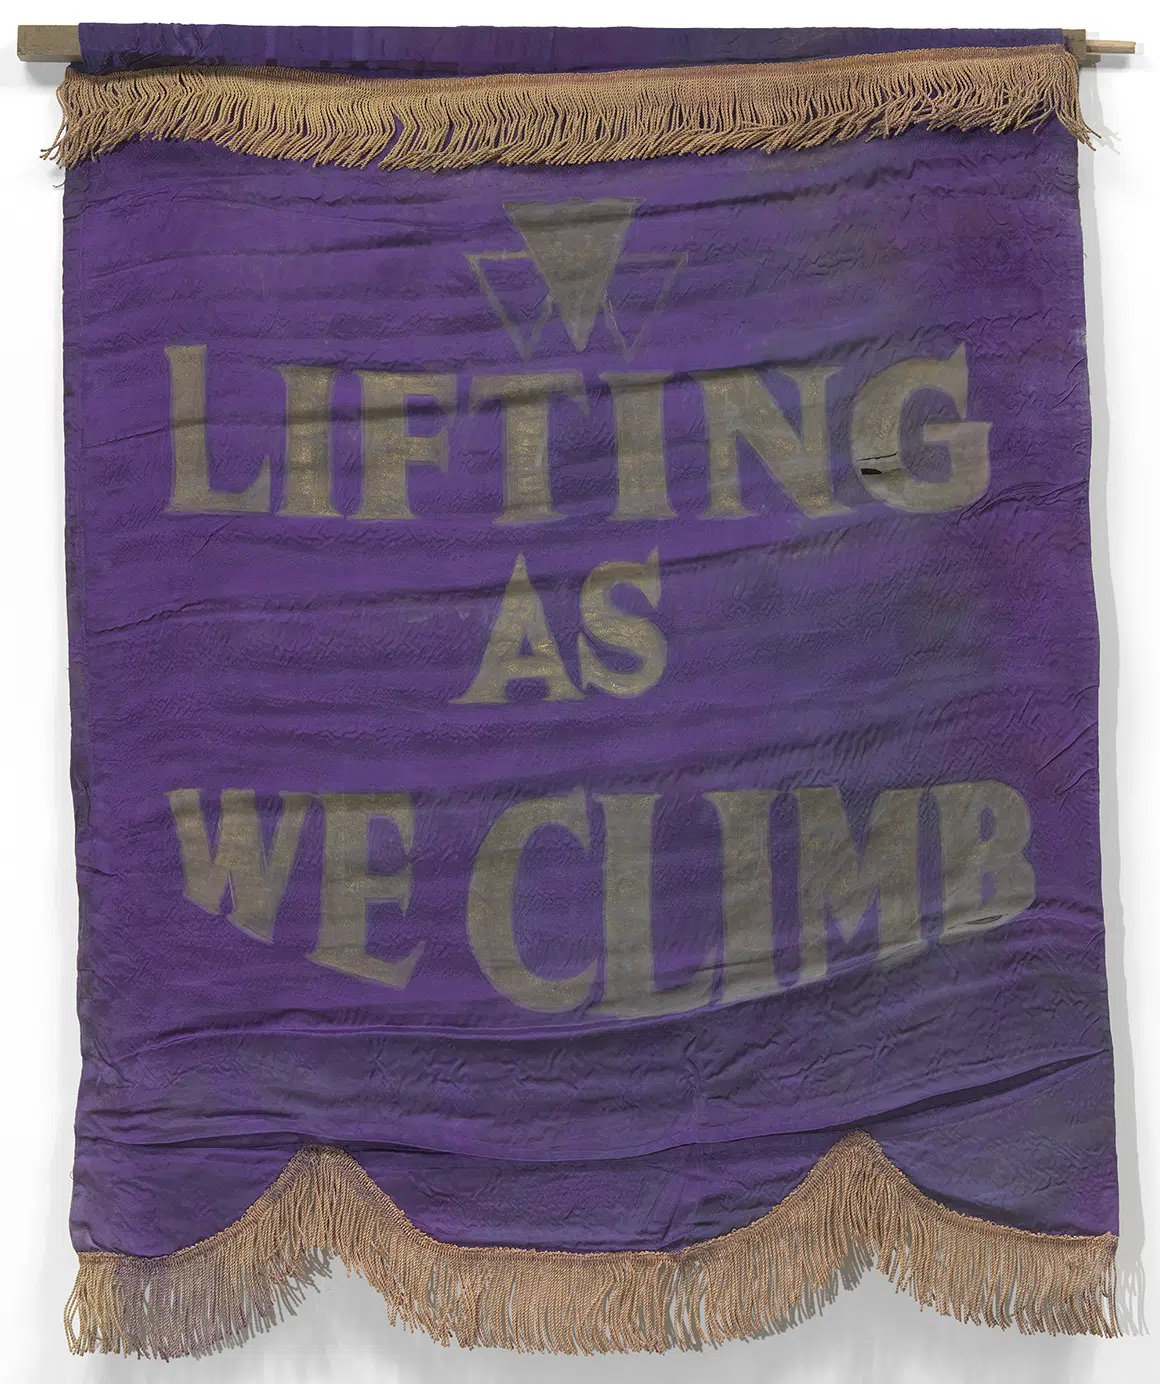 LIFTING
AS
WE CLIMB